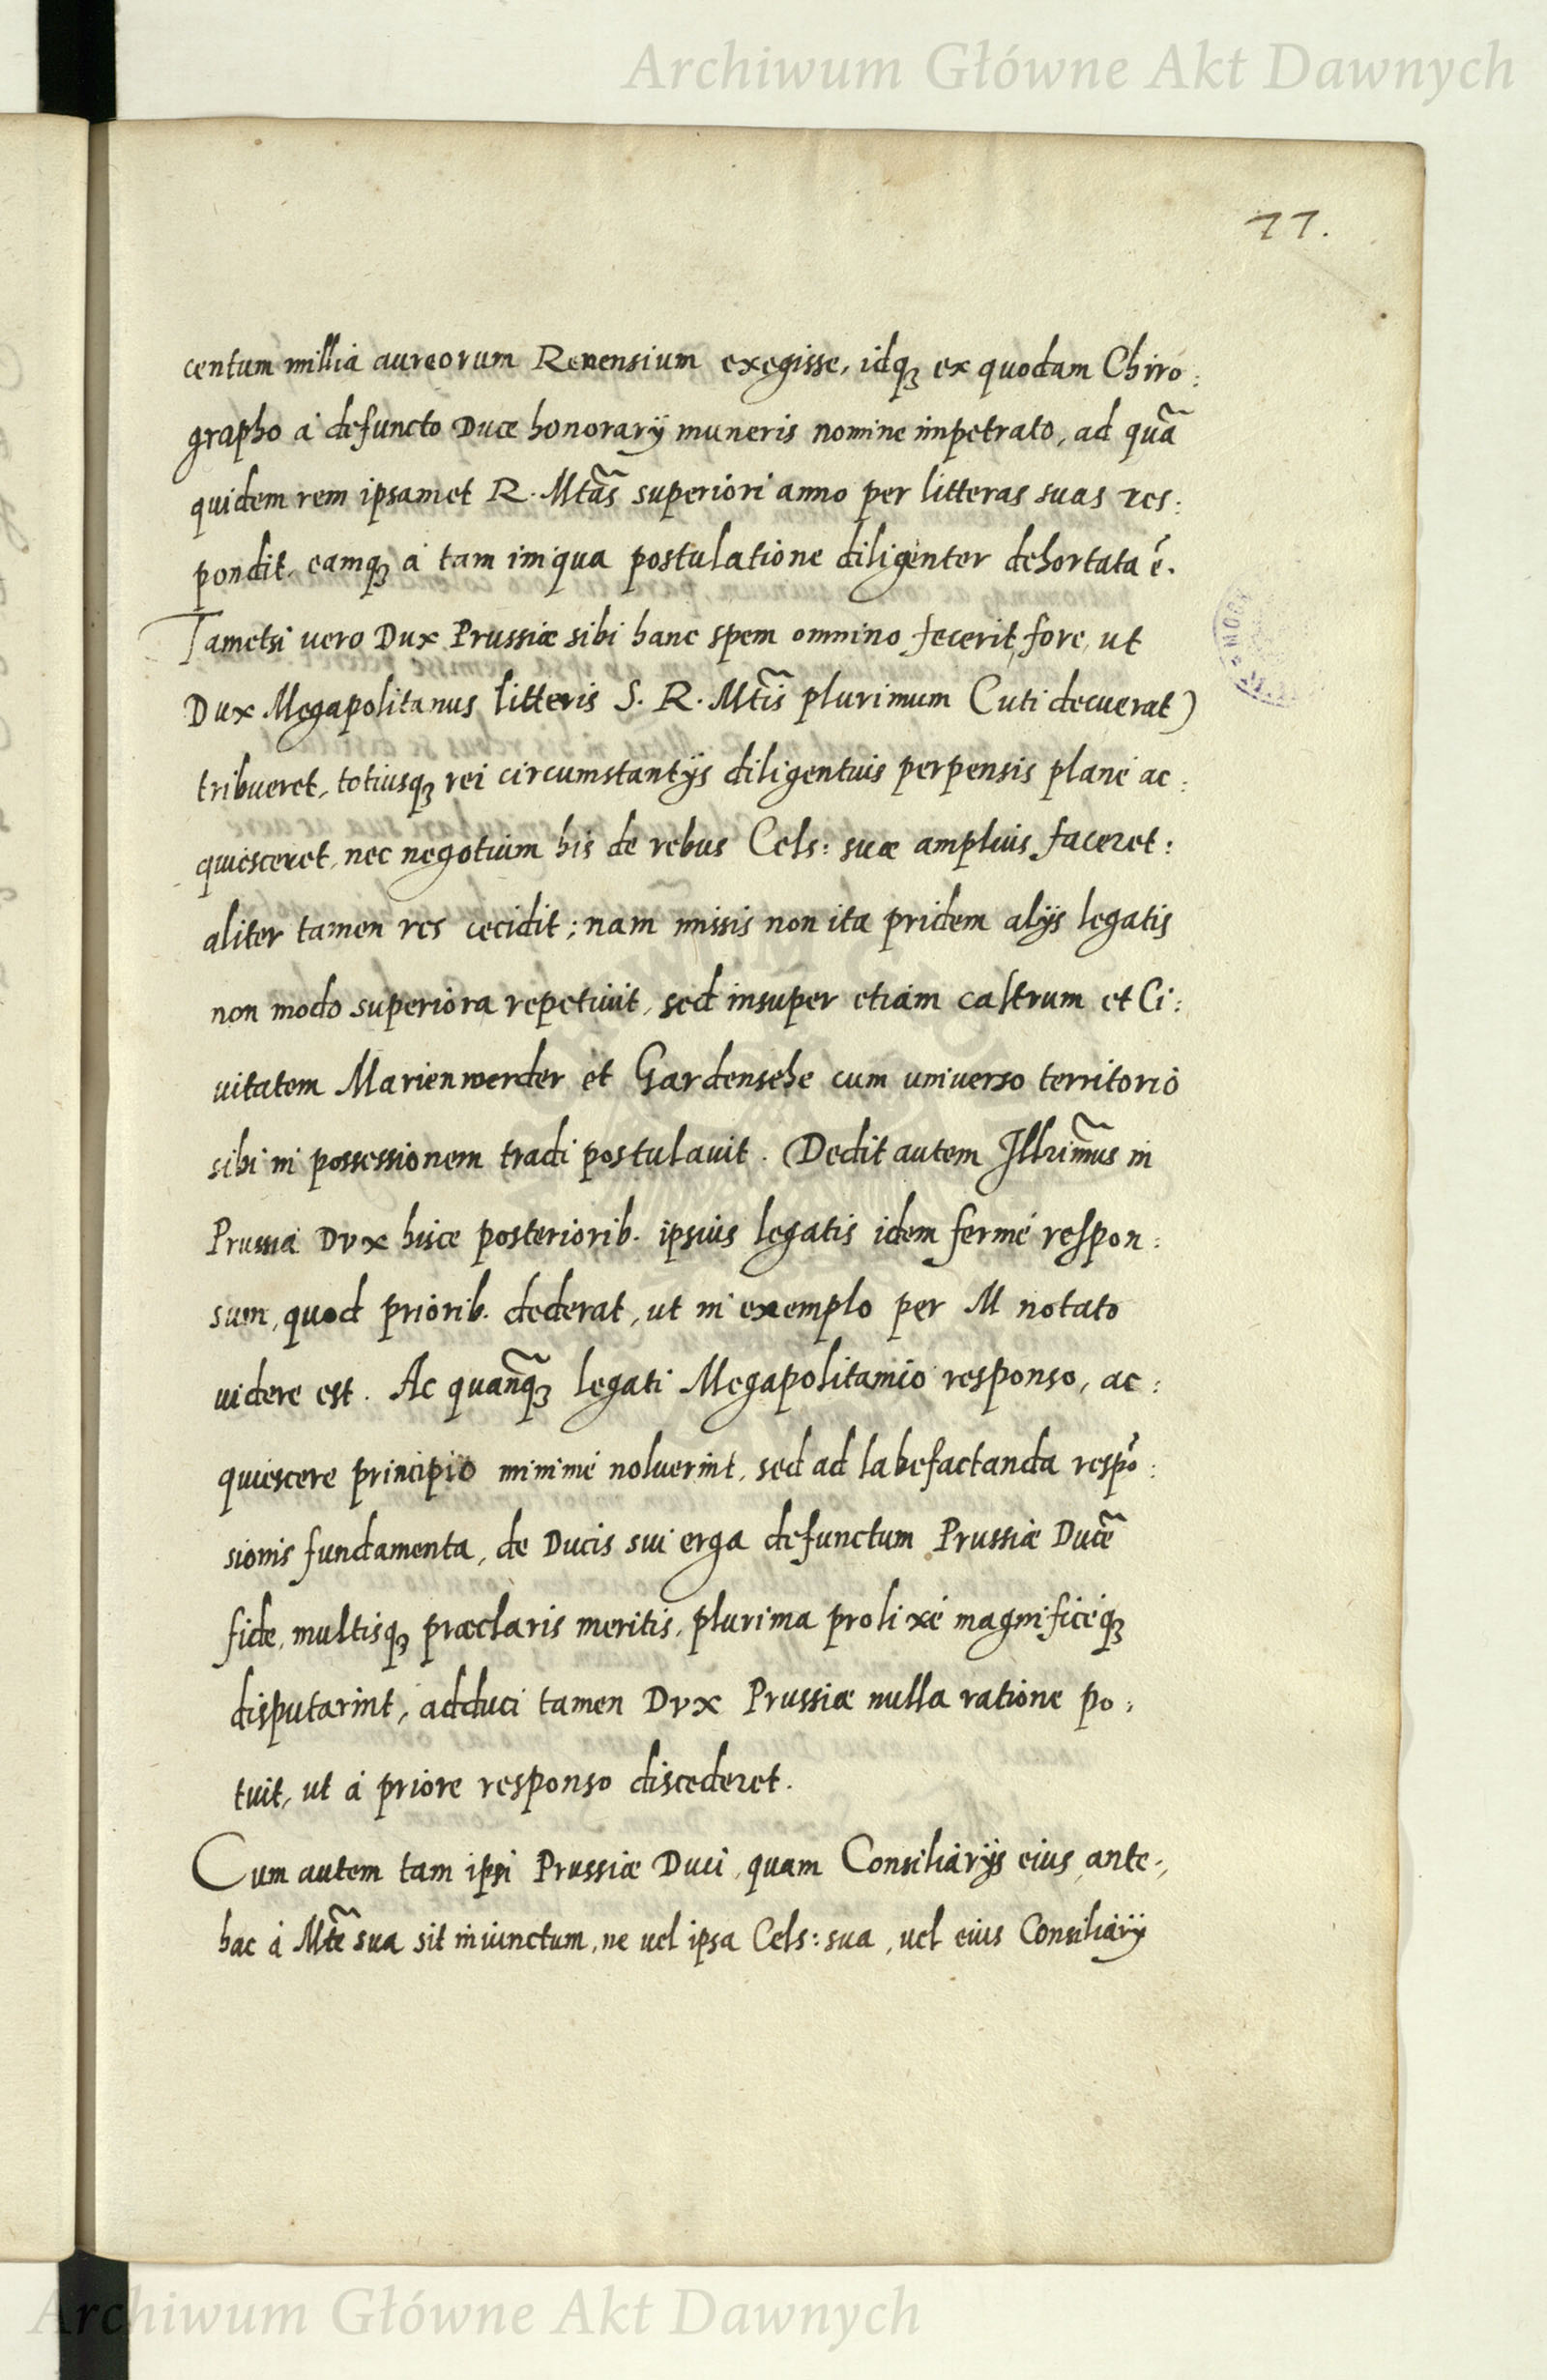 Archiwum Główne Akt Dawnych
77.
centum millia aureorum Renensium exegisse, idq₃ ex quodam Chiro:
grapho à defuncto Duce honorarÿ muneris nomine impetrato, ad quã
quidem rem ipsamet R. Mtãs superiori anno per litteras suas res:
pondit, eamq₃ à tam iniqua postulatione diligenter dehortata ẽ.
Tametsi vero Dux Prussiæ sibi hanc spem omnino fecerit, fore, ut
Dux Megapolitanus litteris S. R. Mtĩs plurimum (uti decuerat)
tribueret, totiusq₃ rei circumstantÿs diligentius perpensis planè ac:
quiesceret, nec negotium his de rebus Cels: suæ amplius faceret:
aliter tamen res cecidit; nam missis non ita pridem alÿs legatis
non modo superiora repetiuit, sed insuper etiam castrum et Ci:
uitatem Marienwerder et Gardensehe cum universo territorio
sibi in possessionem tradi postulauit. Dedit autem Illrim̃us in
Prussia Dux hisce posteriorib. ipsius legatis idem fermè respon:
sum, quod priorib. dederat, ut in exemplo per M notato
uidere est. Ac quanq̃₃ legati Megapolitanio responso, ac:
quiescere principio minimè noluerint, sed ad labefactanda respõ:
sionis fundamenta, de Ducis sui erga defunctum Prussiæ Ducẽ
fide, multisq₃ præclaris meritis, plurima prolixè magnificèq₃
disputarint, adduci tamen Dux Prussiæ nulla ratione po:
tuit, ut à priore responso discederet.
Cum autem tam ipsi Prussiæ Duci, quam Consiliarÿs eius, ante:
hac à Mtẽ sua sit iniunctum, ne uel ipsa Cels: sua, uel eius Consiliarÿ
Archiwum Główne Akt Dawnych